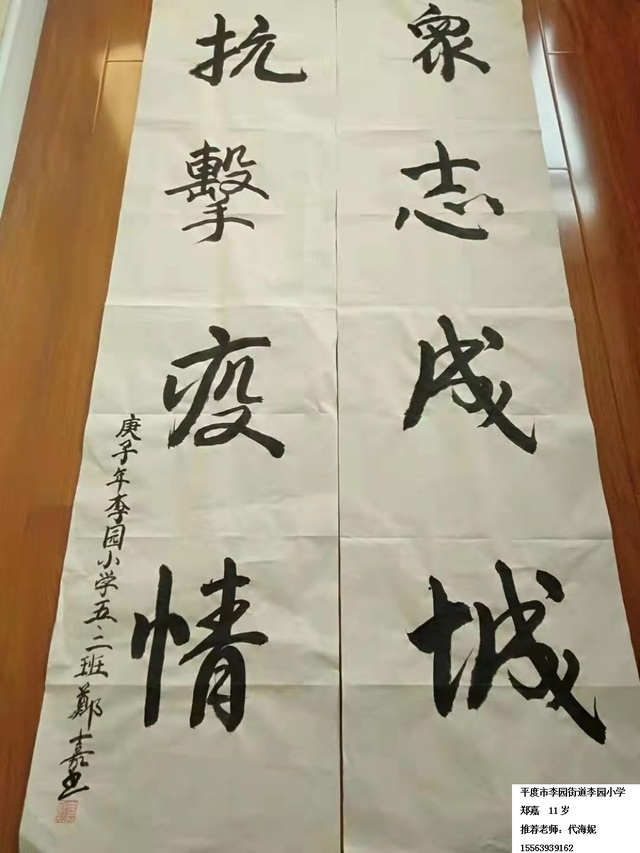 衆志成城
抗擊疫情
庚子年李园小学五、二班鄭嘉书
平度市李园街道李园小学
郑嘉 11岁
推荐老师：代海妮
15563939162